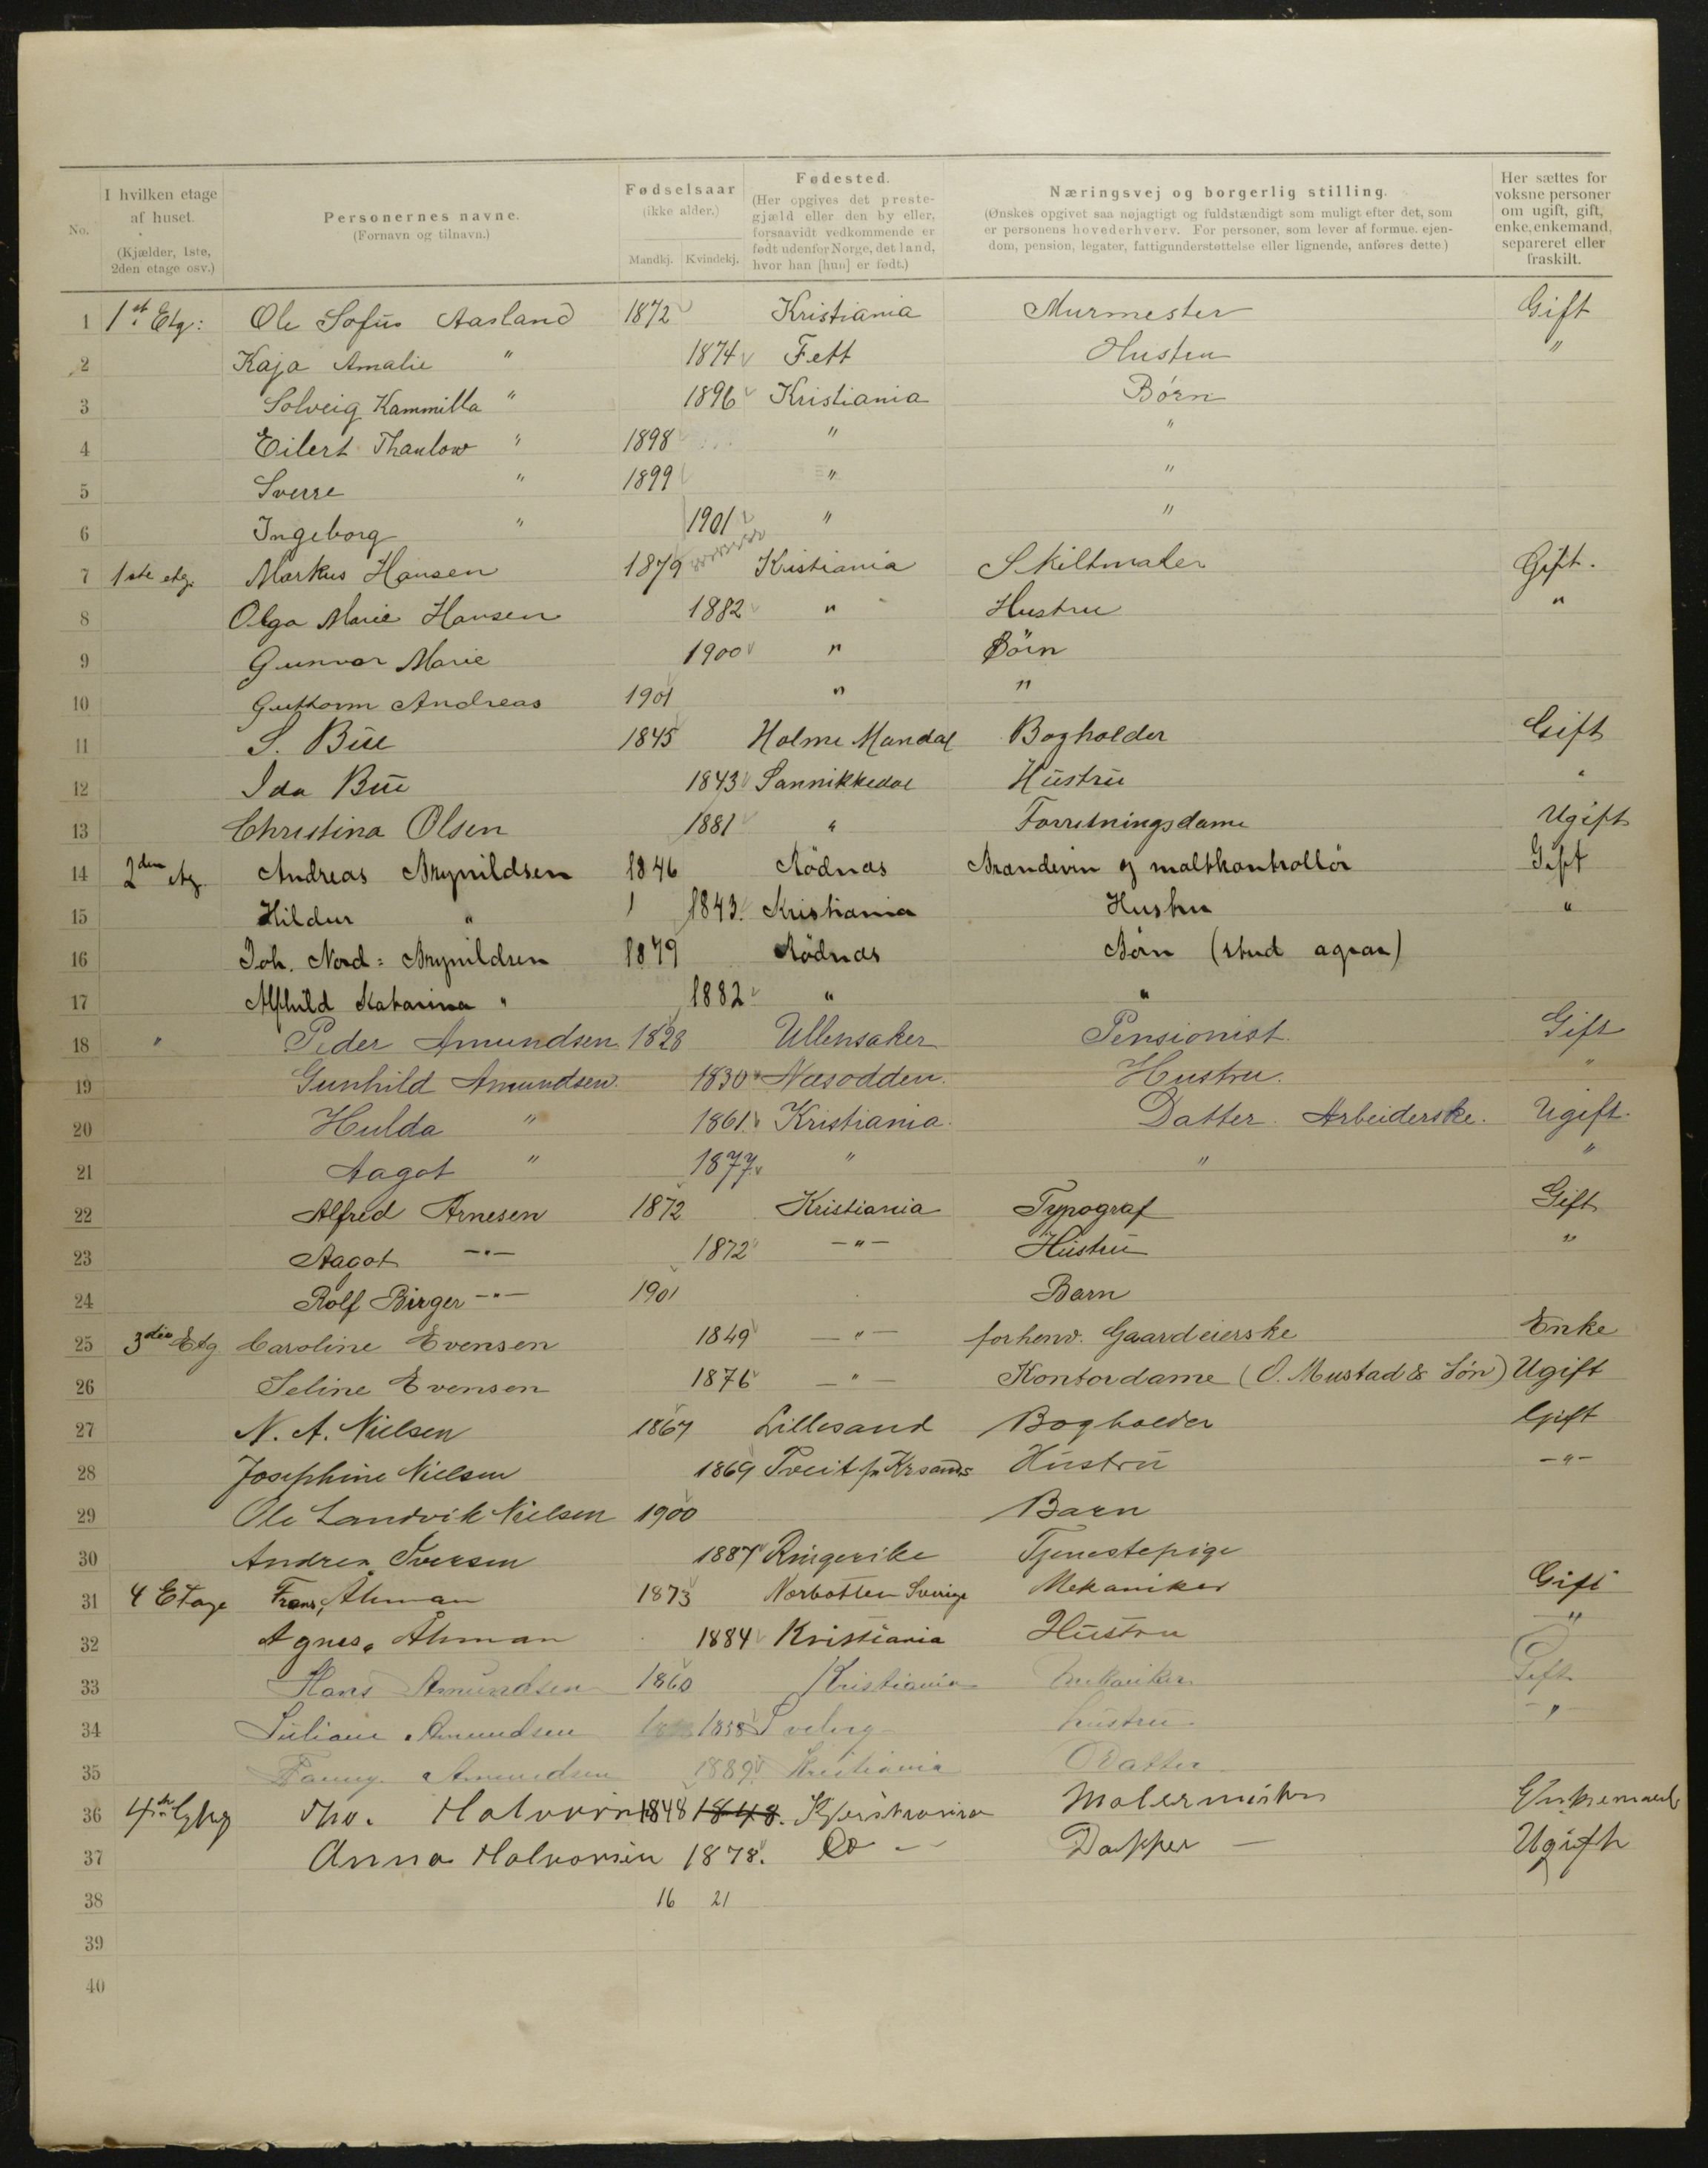 No.
I hvilken etage af huset. (Kjælder, 1ste, 2den etage osv.)
Personernes navne. (Fornavn og tilnavn.)
Fødselsaar (ikke alder.) Mandkj. Kvindekj.
Fødested. (Her opgives det prestegjæld eller den by eller, forsaavidt vedkommende er født udenfor Norge, det land, hvor han [hun] er født.)
Næringsvej og borgerlig stilling. (Ønskes opgivet saa nøjagtigt og fuldstændigt som muligt efter det, som er personens hovederhverv. For personer, som lever af formue, ejendom, pension, legater, fattigunderstøttelse eller lignende, anføres dette.)
Her sættes for voksne personer om ugift, gift, enke, enkemand, separeret eller fraskilt.
1 1st Etg: Ole Sofus Aasland 1872 Kristiania Murmester Gift
2 Kaja Amalie " 1874 Fett Hustru "
3 Solveig Kammilla " 1896 Kristiania Børn
4 Eilert Thaulow " 1898 " "
5 Sverre " 1899 " "
6 Ingeborg " 1901 " "
7 1ste etg. Markus Hansen 1879 Kristiania Skiltmaler Gift.
8 Olga Marie Hansen 1882 " Hustru "
9 Gunvor Marie 1900 " Börn
10 Guthorm Andreas 1901 " "
11 S. Bue 1845 Holme Mandal Bogholder Gift
12 Ida Bue 1843 Sannikkedal Hustru "
13 Christina Olsen 1881 " Forretningsdame Ugift
14 2den etg. Andreas Brynildsen 1846 Rödnæs Brændevin og maltkontrollör Gift
15 Hildur " 1843. Kristiania Hustru "
16 Joh. Nord: Brynildsen 1879 Rödnæs Börn (stud agrar)
17 Alfhild Katarina " 1882 " "
18 " Peder Amundsen 1828 Ullensaker Pensionist. Gift
19 Gunhild Amundsen. 1830 Næsodden. Hustru. "
20 Hulda " 1861. Kristiania. Datter. Arbeiderske. Ugift.
21 Aagot " 1877. " " "
22 Alfred Arnesen 1872 Kristiania Typograf Gift
23 Aagot —"— 1872 —"— Hustru "
24 Rolf Birger —"— 1901 Barn
25 3die Etg Caroline Evensen 1849 —"— forhenv. Gaardeierske Enke
26 Seline Evensen 1876 —"— Kontordame (O. Mustad & Søn) Ugift
27 N. A. Nielsen 1867 Lillesand Bogholder Gift
28 Josephine Nielsen 1869 Tveit pr Krsand Hustru —"—
29 Ole Landvik Nielsen 1900 Barn
30 Andrea Iversen 1887 Ringerike Tjenestepige
31 4 Etage Frans, Åhman 1873 Norbotten Sverige Mekaniker Gift
32 Agnes. Åhman 1884 Kristiania Hustru "
33 Hans Amundsen 1860 Kristiania Mekaniker Gift
34 Juliane Amundsen 1858 hustru "
35 Fanny. Amundsen 1889 Kristiania Datter
36 Tho. Halvorsen 1848 1848. Kristiania Malermester Enkemand
37 Anna Halvorsen 1878. Do — Datter — Ugift
38 16 21
39
40